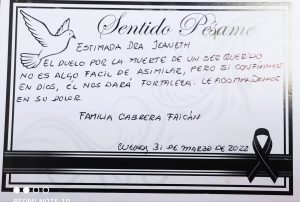 Sentido Pésame
Estimada Dra Jeaneth
El duelo por la muerte de un ser querido
no es algo facil de asimilar, pero si confiamos
en Dios, él nos dará fortaleza. Le acompañamos
en su dolor.
Familia Cabrera Faicán
Cuenca, 31 de marzo de 2022
REDMI NOTE 10